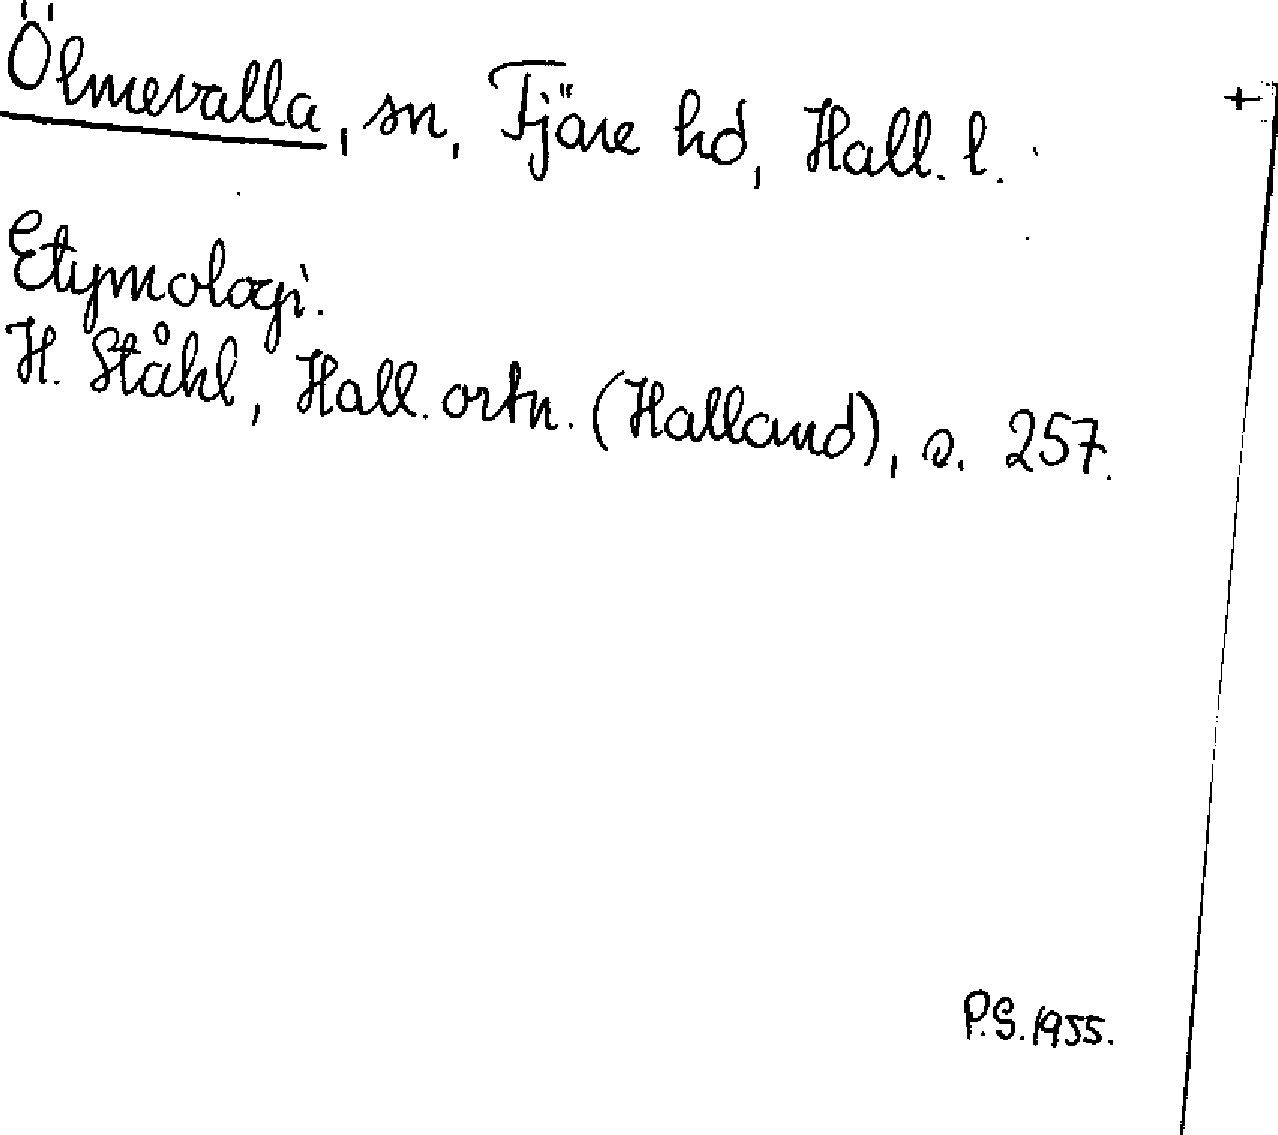 Ölmevalla, sn, Fjäre hd, Hall. l.
Etymologi.
H. Ståhl, Hall. ortn. (Halland), s. 257.
P.S. 1955.